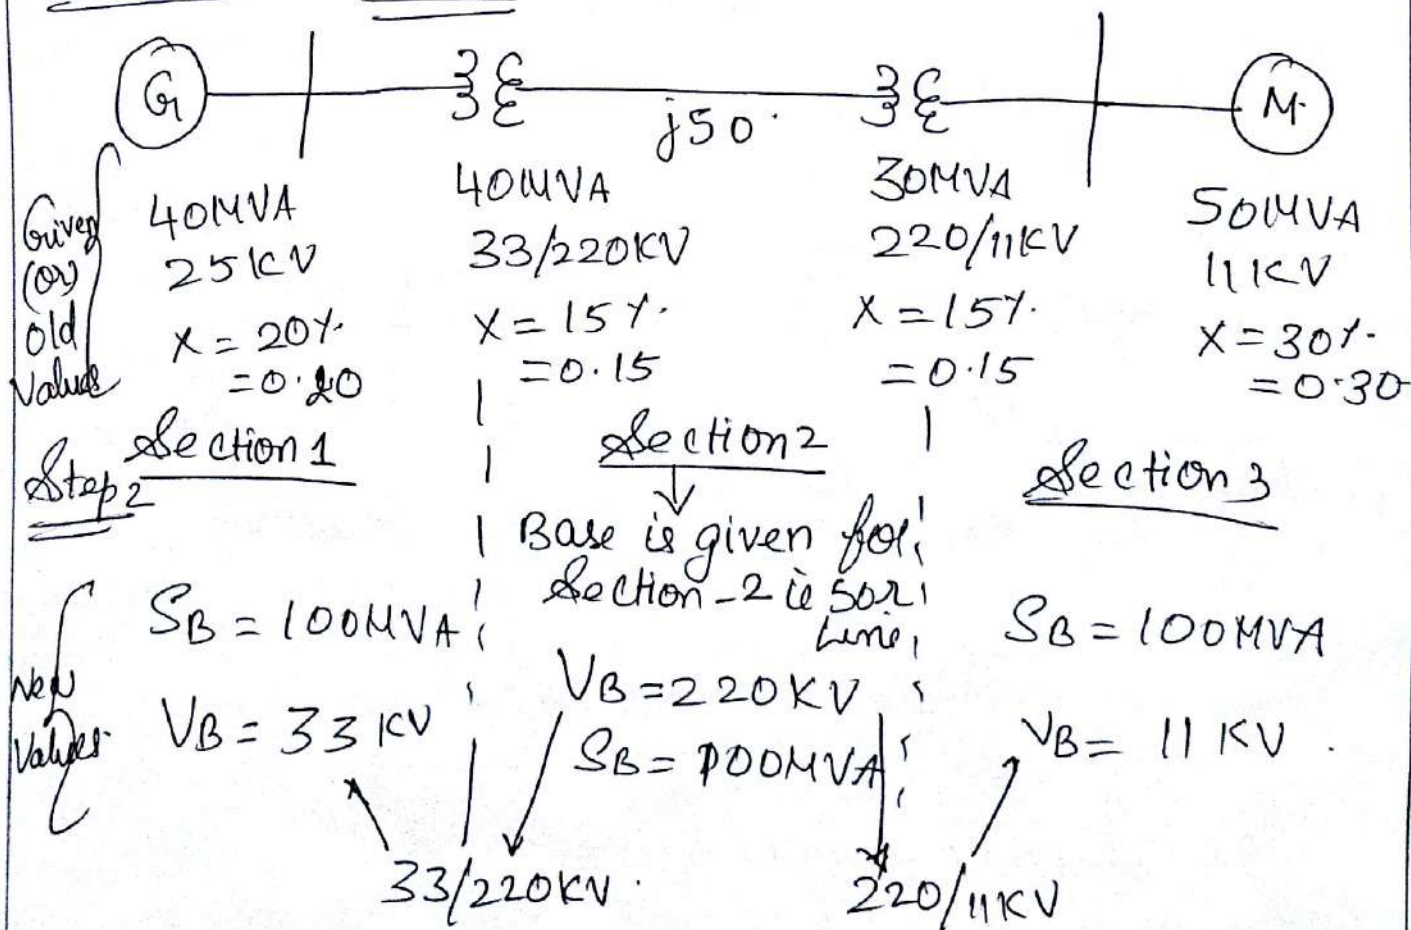 G
M
j50
Given
(or)
old
Values
40MVA
25KV
X = 20%
= 0.20
40MVA
33/220KV
X = 15%
= 0.15
30MVA
220/11KV
X = 15%
= 0.15
50MVA
11KV
X = 30%
= 0.30
Step 2
Section 1
Section 2
Section 3
Base is given for
Section-2 ie
Line
New
Values
SB = 100MVA
VB = 33 KV
VB = 220KV
SB = 100MVA
SB = 100MVA
VB = 11 KV
33/220KV
220/11KV